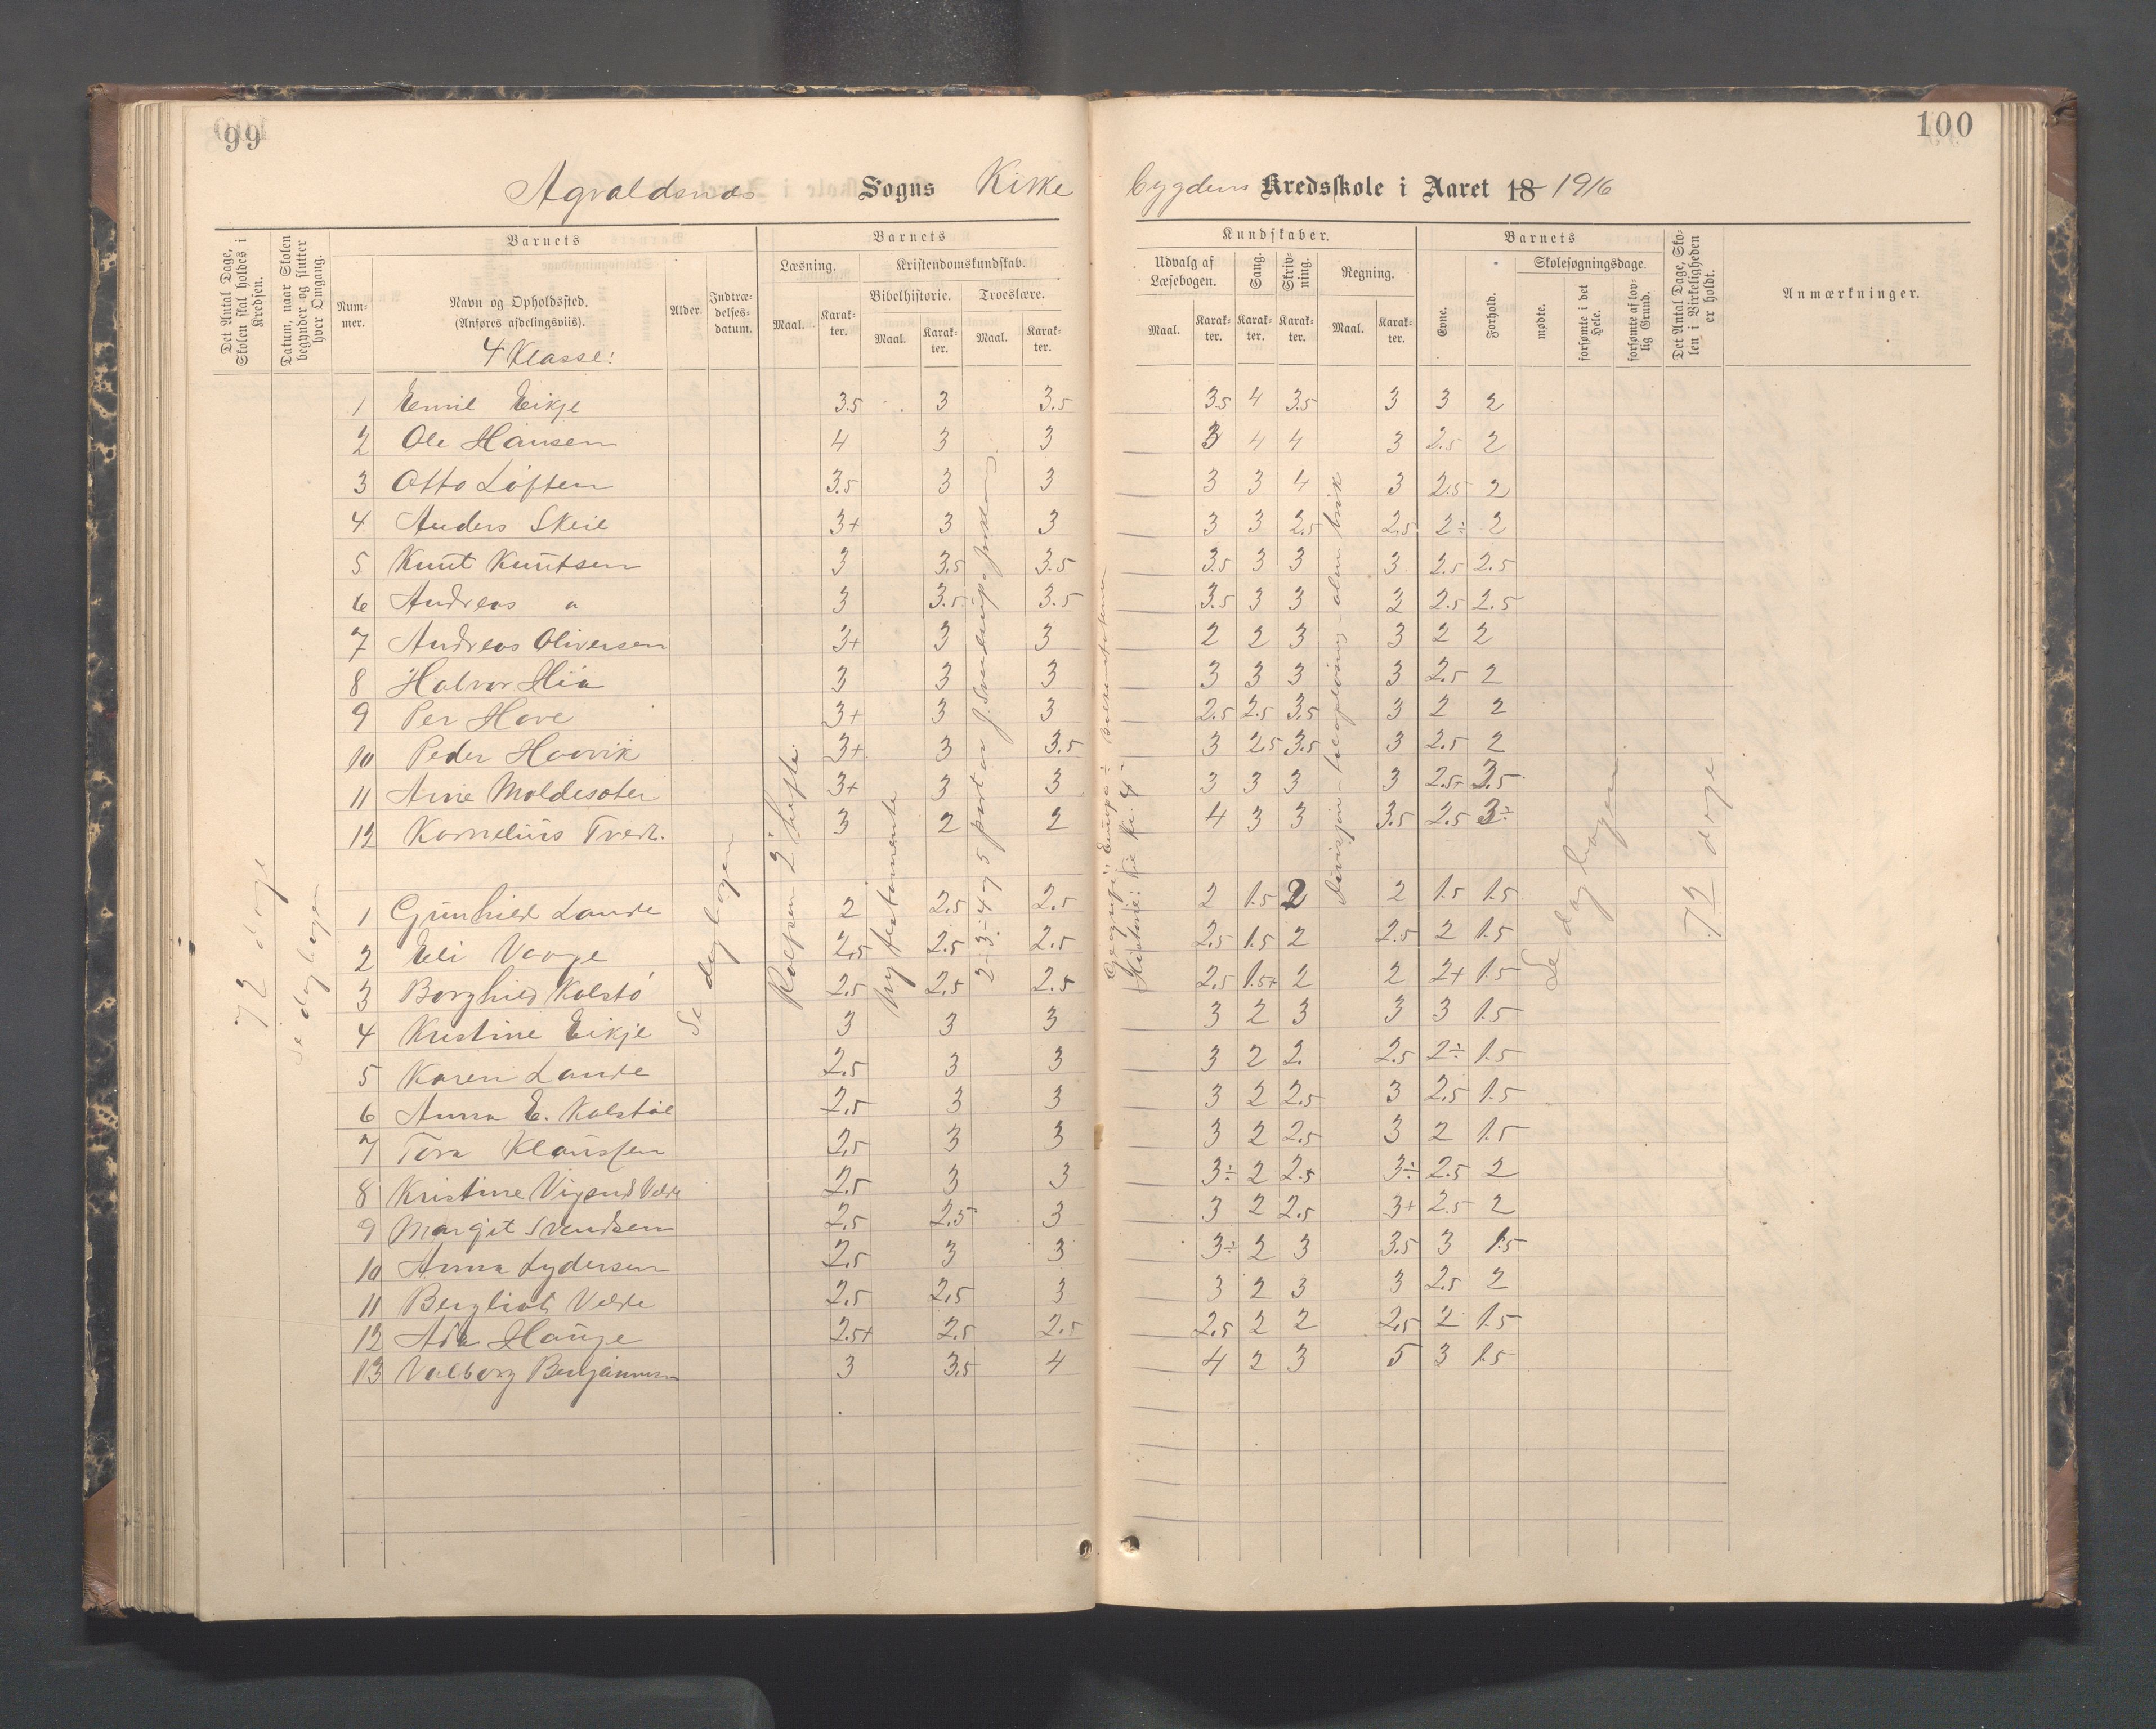 99
100
Agvaldsnæs Sogns Kirke bygdens Kredsskole i Aaret 18 1916
Det Antal Dage, Skolen skal holdes i Kredsen.
Datum, naar Skolen begynder og slutter hver Omgang.
Barnets
Nummer.
Navn og Opholdssted.
(Anføres afdelingsviis).
4 Klasse:
Alder.
Indtrædelsesdatum.
Barnets
Læsning.
Maal.
Karakter.
Kristendomskundskab.
Bibelhistorie.
Maal.
Karakter.
Troeslære.
Maal.
Karakter.
Kundskaber.
Udvalg af Læsebogen.
Maal.
Karakter.
Sang.
Karakter.
Skrivning.
Karakter.
Regning.
Maal.
Karakter.
Barnets
Evne.
Forhold.
Skolesøgningsdage.
mødte.
forsømte i det Hele.
forsømte af lovlig Grund.
Det Antal Dage, Skolen i Virkeligheden er holdt.
Anmærkninger.
1 Emil Eikje 3.5 3 3.5 3.5 4 3.5 3 3 2
2 Ole Hansen 4 3 3 3 4 4 3 2.5 2
3 Otto Løften 3.5 3 3 3 3 4 3 2.5 2
4 Anders Skeie 3+ 3 3 3 3 2.5 2.5 2÷ 2
5 Knut Knutsen 3 3.5 3.5 3.5 3 3 3 2.5 2.5
6 Andreas " 3 3.5 3.5 3.5 3 3 2 2.5 2.5
7 Andreas Oliversen 3+ 3 3 2 2 3 3 2 2
8 Halvor Hia 3 3 3 3 3 3 3 2.5 2
9 Per Have 3+ 3 3 2.5 2.5 3.5 3 2 2
10 Peder Haavik 3+ 3 3.5 3 2.5 3.5 3 2.5 2
11 Arne Moldesæter 3+ 3 3 3 3 3 3 2.5+ 3.5
12 Kornelius Tveit. 3 2 2 4 3 3 3.5 2.5 3÷
1 Gunhild Lande 2 2.5 2.5 2 1.5 2 2 1.5 1.5
2 Eli Vaage 2.5 2.5 2.5 2.5 1.5 2 2.5 2 1.5
3 Borghild Kolstø 2.5 2.5 2.5 2.5 1.5+ 2 2 2+ 1.5
4 Kristine Eikje 3 3 3 3 2 3 3 3 1.5
5 Karen Lande 2.5 3 3 3 2 2. 2.5 2÷ 1.5
6 Anna E. Kolstøe 2.5 3 3 3 2 2.5 3 2.5 1.5
7 Tora Klaussen 2.5 3 3 3 2 2.5 3 2 1.5
8 Kristine Vigand Velde 2.5 3 3 3÷ 2 2.5 3÷ 2.5 2
9 Margit Svendsen 2.5 2.5 3 3 2 2.5 3+ 2.5 2
10 Anna Lydersen 2.5 3 3 3÷ 2 3 3.5 3 1.5
11 Bergliot Velde 2.5 2.5 3 3 2 3 3 2.5 2
12 Ada Hauge 2.5+ 2.5 2.5 2.5 2 2 2.5 2 1.5
13 Valborg Benjaminsen 3 3.5 4 4 2 3 5 3 1.5
72 dage
Se dagbogen
Se dagbogen
Rolfsen 2 hefte.
Ny testamente
2-3-4 og 5 part av J. Sverdrups forklaring.
Geografi: Europa ÷
Historie: til
Se dagbogen
72 dage